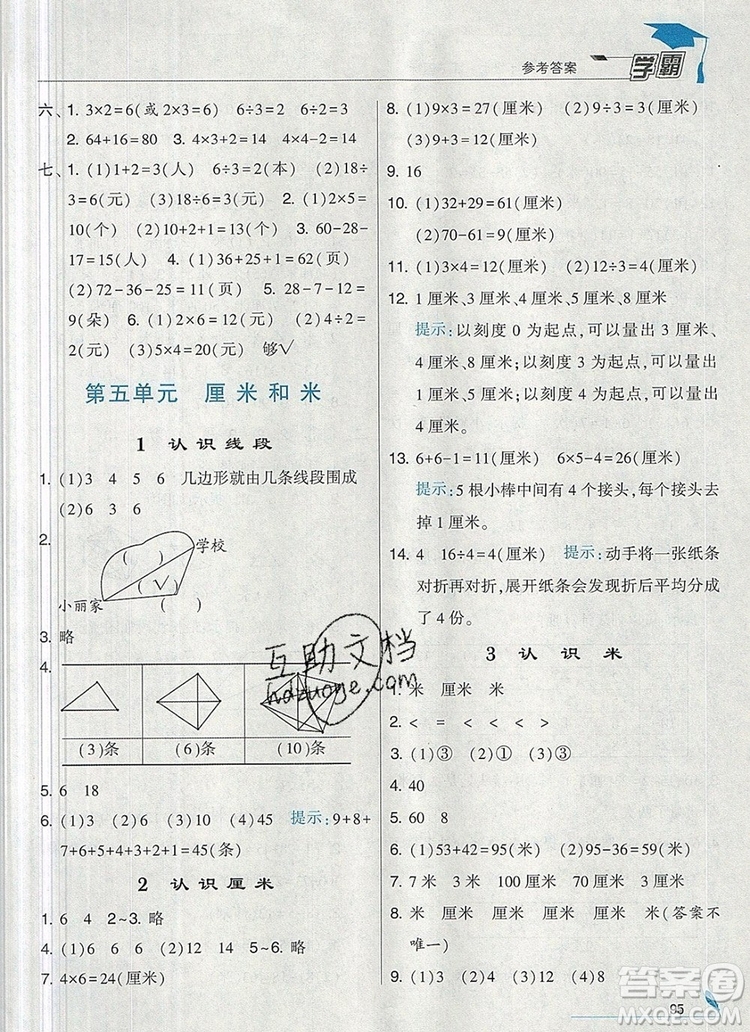 参考答案 学霸
六、1. 3×2=6(或2×3=6) 6÷3=2 6÷2=3
2. 64+16=80 4. 4×3+2=14 4×4-2=14
七、1. (1)1+2=3(人) 6÷3=2(本) (2)18÷
3=6(元) (3)18÷6=3(元) 2. (1)2×5=
10(个) (2)10÷2=5(个) 3. 60-28-
17=15(个) 4. (1)36+25+1=62(页)
(2)72-36-11=25(页) 5. 28-7-12=
9(朵) 6. (1)2×6=12(元) (2)4÷2=
2(元) (3)5×4=20(元) 够√
第五单元 厘米和米
1 认识线段
1. (1)3 4 5 6 几边形就由几条线段围成
(2)6 3 6
2.
学校
(√)
小丽家 ( )
3. 略
4.
(3)条 (6)条 (10)条
5. 6 18
6. (1)3 (2)6 (3)10 (4)45 提示:9+8+
7+6+5+4+3+2+1=45(条)
2 认识厘米
1. 6 4 2~3. 略
4. (1)6 6 (2)12 14 5~6. 略
7. 4×6=24(厘米)
8. (1)9×3=27(厘米) (2)9÷3=3(厘米)
(3)9+3=12(厘米)
9. 16
10. (1)32+29=61(厘米)
(2)70-61=9(厘米)
11. (1)3×4=12(厘米) (2)12÷3=4(厘米)
12. 1厘米、4厘米、3厘米、5厘米、8厘米
提示:以刻度0为起点,可以量出3厘米、
4厘米、8厘米;以刻度3为起点,可以量出
1厘米、5厘米;以刻度4为起点,可以量出
4厘米。
13. 6+6-1=11(厘米) 6×5-4=26(厘米)
提示:5根小棒中间有4个接头,每个接头去
掉1厘米。
14. 4 16÷4=4(厘米) 提示:动手将一张纸条
对折再对折,展开纸条会发现折后平均分成
了4份。
3 认识米
1. 米 厘米 米
2. < = < < < >
3. (1)③ (2)① (3)③
4. 40
5. 60 8
6. (1)53+42=95(米) (2)95-36=59(米)
7. 7米 3米 100厘米 70厘米 3厘米
8. 米 厘米 米 厘米 厘米 米(答案不
唯一)
9. (1)3 (2)4 (3)12 (4)8
95
互助文档
hdzuoge.com
答案圈
MXQE.COM